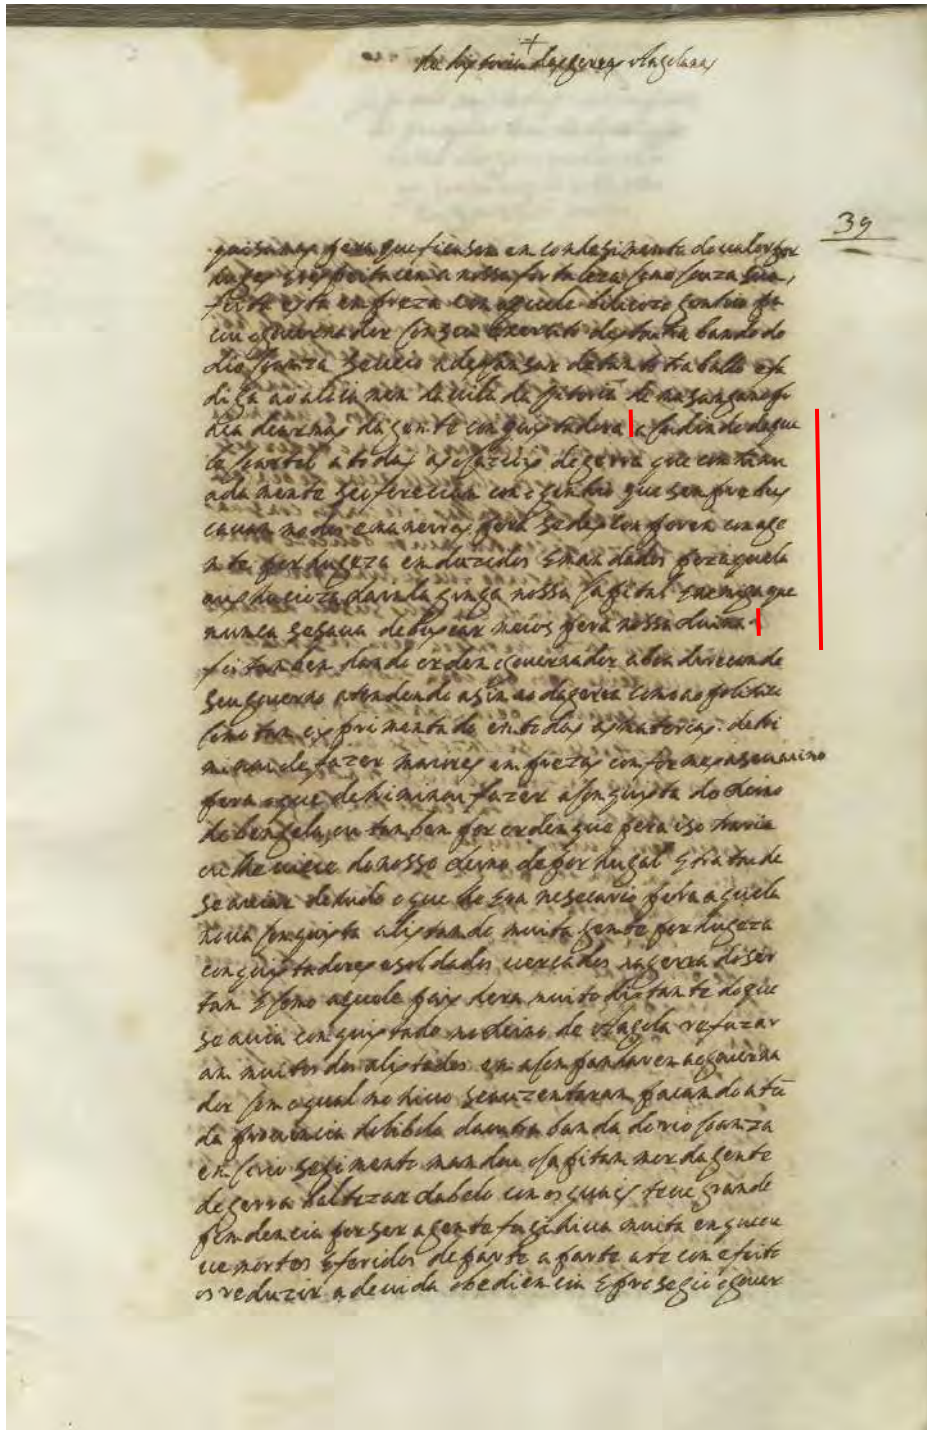 da historia das gerras Angolanas
39
quisamas pera que ficasem en conhesimento do ualor por
tuges e respeitasem a nossa fortaleza
feita esta enpreza con aquele belicozo gentio
o gouernador con seu exersito de outra banda do
Rio Coanza se ueio a descansar de tanto traballo e fa
diga ao alicansen da uila da uitoria de masangano
de armas da gente conquistadora acudindo daque
le cuartel a todas as ocazois de gerra que continu
ada mente se oferecian con o gentio que senpre bus
cauan modos e maneiras pera se descomporen con a ge
nte portugeza enduzidos e mandados por aquela
astucioza rainla ginga nossa capital enemiga que
nunca sesaua de buscar meios pera nossa Ruina
foi tanben dando orden o gouernador a boa direcan de
seu gouerno atendendo asin ao da gerra como ao politico
como tan esprimentado en todas as materias detri
minou de fazer maiores enprezas conformes a seu animo
pera o que detriminou fazer a conquista do Reino
de bengela, ou tanben por orden que pera iso trazia
ou lhe uiese do nosso Reino de portugal e tratou de
se auiar de tudo o que lhe era nesecario pera aquela
noua conquista alistando muita gente portugeza
conquistadores e soldados uersados na gerra do ser
tan e como aquele pais era muito distante do que
se auia conquistado no Reino de Angola refuzar
an muitos dos alistados en aconpanharen ao gouerna
dor com o qual motiuo se auzentaran pasando a tera
da prouincia do libolo da outra banda do rio coanza
en cuio segimento mandou o capitan mor da gente
de gerra baltezar Rabelo con os quais teue grande
pendencia por ser a gente fugidiua muita en que ou
ue mortos e feridos de parte a parte ate con efeito
os reduzir a deuida obediencia e prosegio o gouer